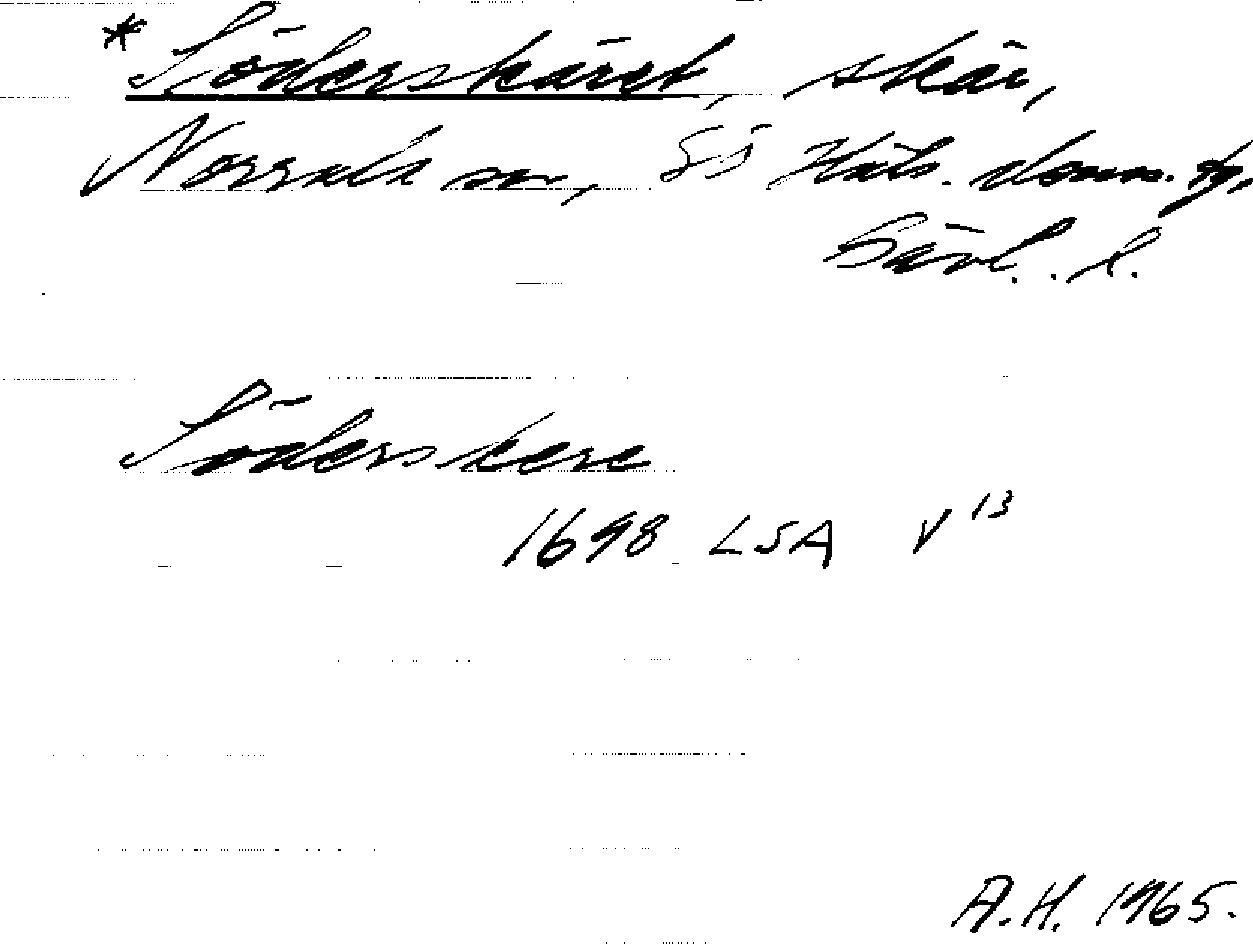 * Söderskäret, skär,
Norrala sn, SÖ Häls. doms. tg,
Gävl. l.
Söderskere
1698 LSA V 13
A.H. 1965.